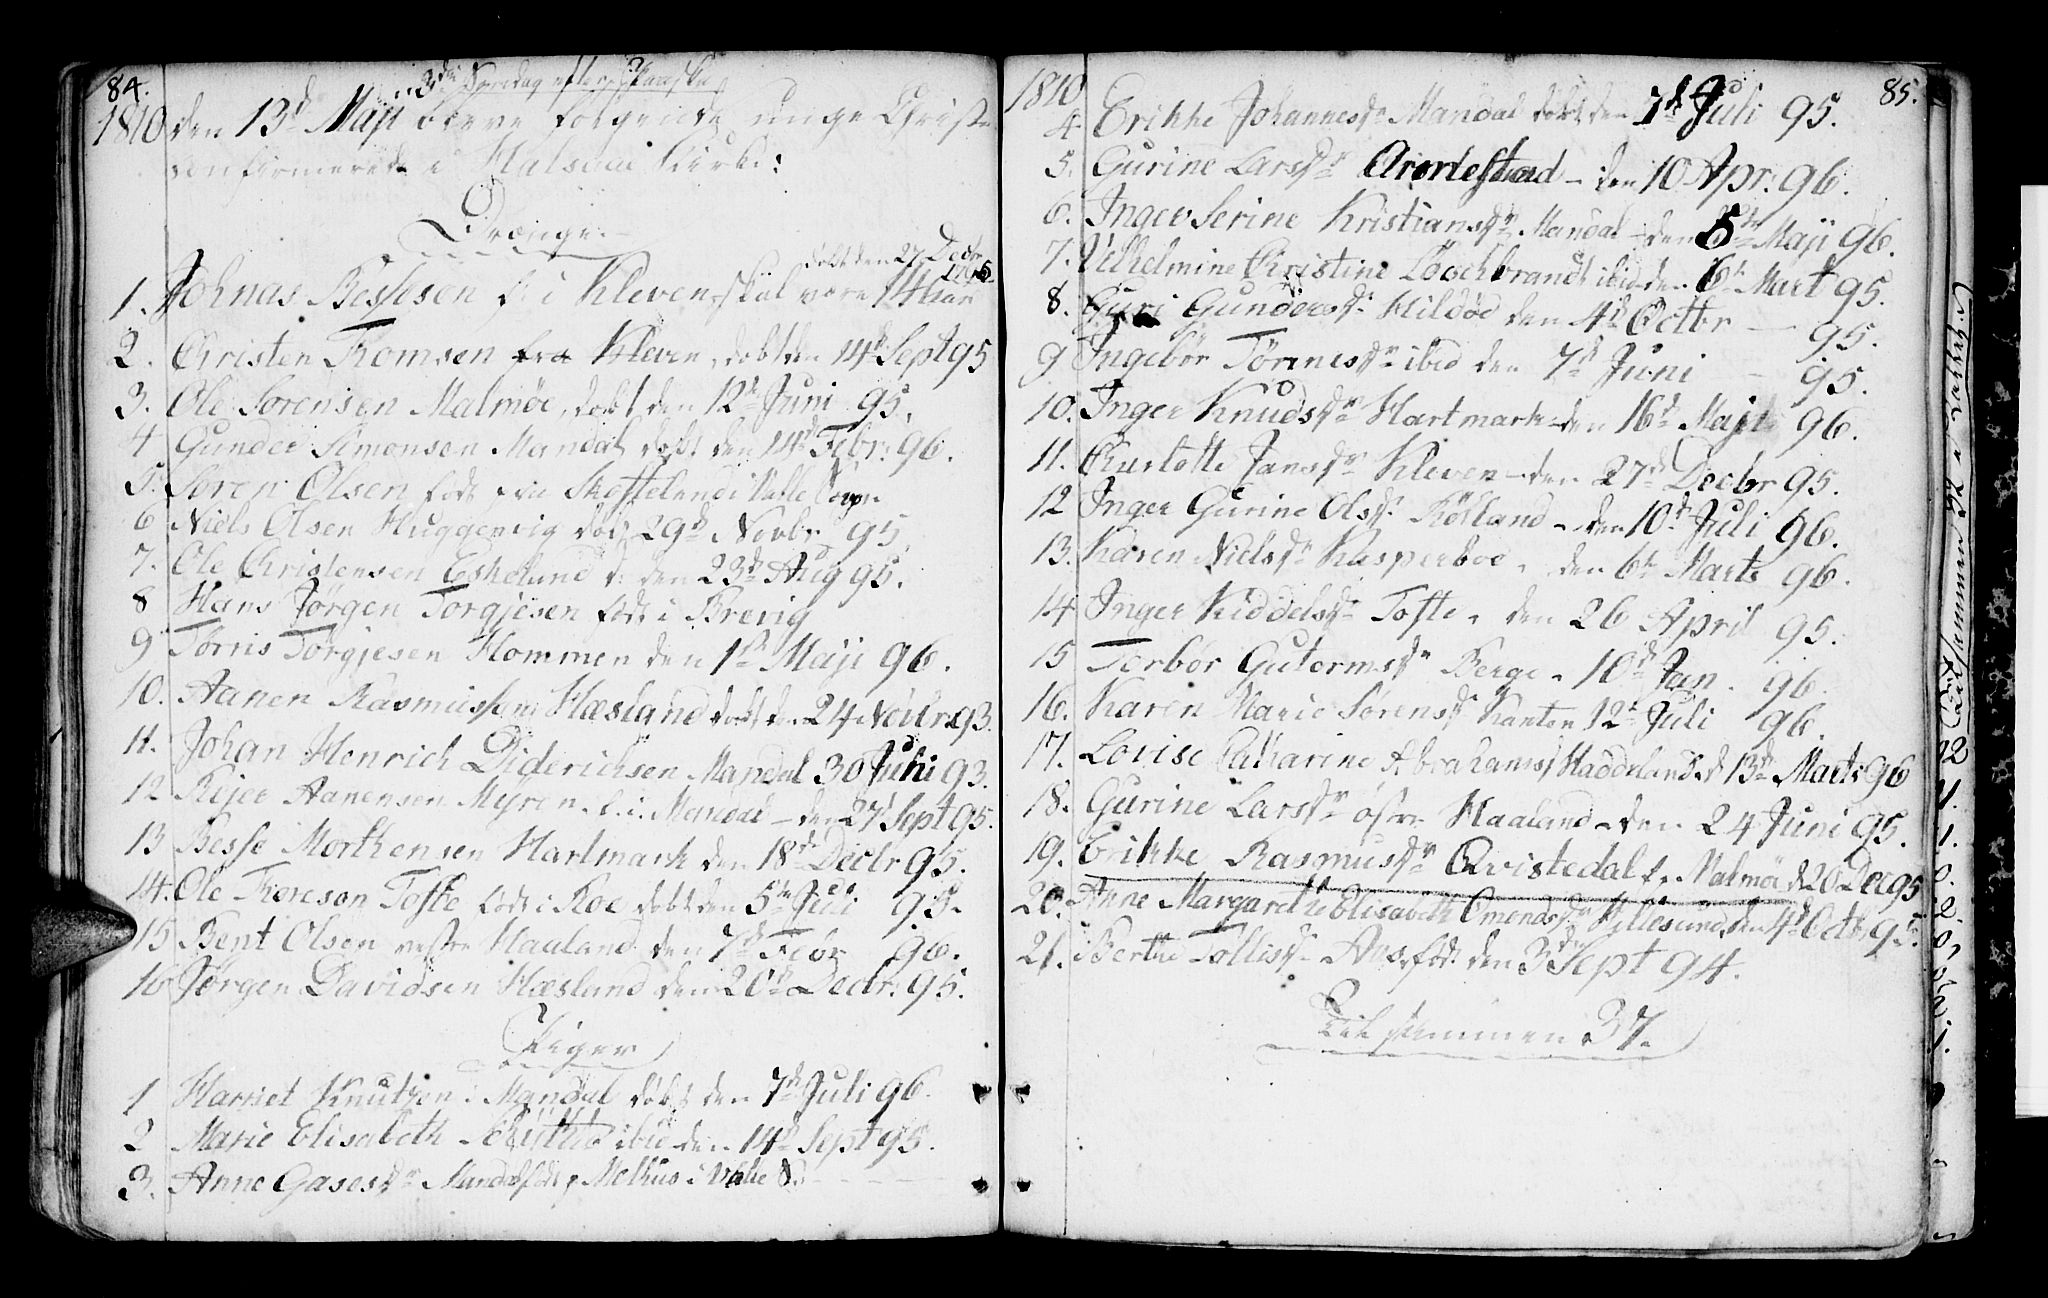 84.
3die Søndag efter Paaske
1810 den 13de Maji bleve følgende unge Christ-
confirmerede i Halsaae Kirke:
Drænge
døbt den 27 Decbr
1795
1. Johnas Bessesen f. i Kleven, skal være 14 aar
2. Christen Tomsen fra Kleven, døbt den 14de Sept 95
3. Ole Sørensen Malmøe, døbt den 12te Juni 95.
4 Gunder Simonsen Mandal døbt den 14de Febr: 96.
5. Søren Olsen født fra Skofteland i Valle Sogn
6 Niels Olsen Huggenvig døbt 29de Novbr 95
7. Ole Christensen Eskelund d: den 23de Aug 95.
8 Hans Jørgen Torgjesen født i Brevig
9 Tørris Törgjesen Hommen den 1ste Maji 96.
10. Aanen Rasmussen Hæsland døbt den 24 Novbr 93.
11. Johan Henrich Diderichsen Mandal 30 Juni 93.
12 Reier Aanensen Myren f. i Mandal - den 27 Sept 95.
13 Besse Morthensen Hartmark den 18de Decbr 95.
14. Ole Toresen Tofte født i Roe døbt den 5te Juli 95.
15 Bent Olsen vestre Haaland den 7de Febr 96.
16 Jørgen Davidsen Hæsland den 20de Decbr: 95.
Piger
1 Harriet Knutzen i Mandal døbt den 7de Juli 96.
2 Marie Elisabeth ibid den 14de Sept 95.
3. Anne Gasesdr Mandal født p. Melhus i Valle S.
85.
1810
4 Erikke Johannesdr Mandal døbt den 7de Juli 95.
5. Gurine Larsdr - den 10 Apr: 96.
6. Inger Serine Kristiansdr Mandal - den 5te Maji 96.
7. Vilhelmine Christine ibid den 6te Mart 95.
8. Guri Gundersdr Hildøe den 4de Octbr - 95.
9 Ingebör Törrisdr ibid den 7de Juni - 95.
10. Inger Knudsdr Hartmark den 16de Maji 96.
11. Charlotte Jansdr Kleven - den 27de Decbr 95.
12 Inger Gurine Olsdr Røsland - den 10de Juli 96.
13. Karen Nielsdr Kasperboe - den 6te Marts 96.
14 Inger Kiddelsdr Tofte - den 26 April 95.
15 Torbör Gutormsdr Berge - 10de Jan. 96.
16. Karen Marie Sørensdr Kanten 12te Juli 96.
17. Lovise Catharine Abrahams Haddeland d. 13de Marts 96
18. Gurine Larsdr østre Haaland - den 24 Juni 95.
19. Erikke Rasmusdr Qvistedal f. Malmö d. 20 Dec 95
20. Anne Margarethe Elisabeth Omendsdr Hillesund, den 4de Octb 95.
21. Berthe Tollisdr Aas, født den 3de Sept 94.
Tilsammen 37.